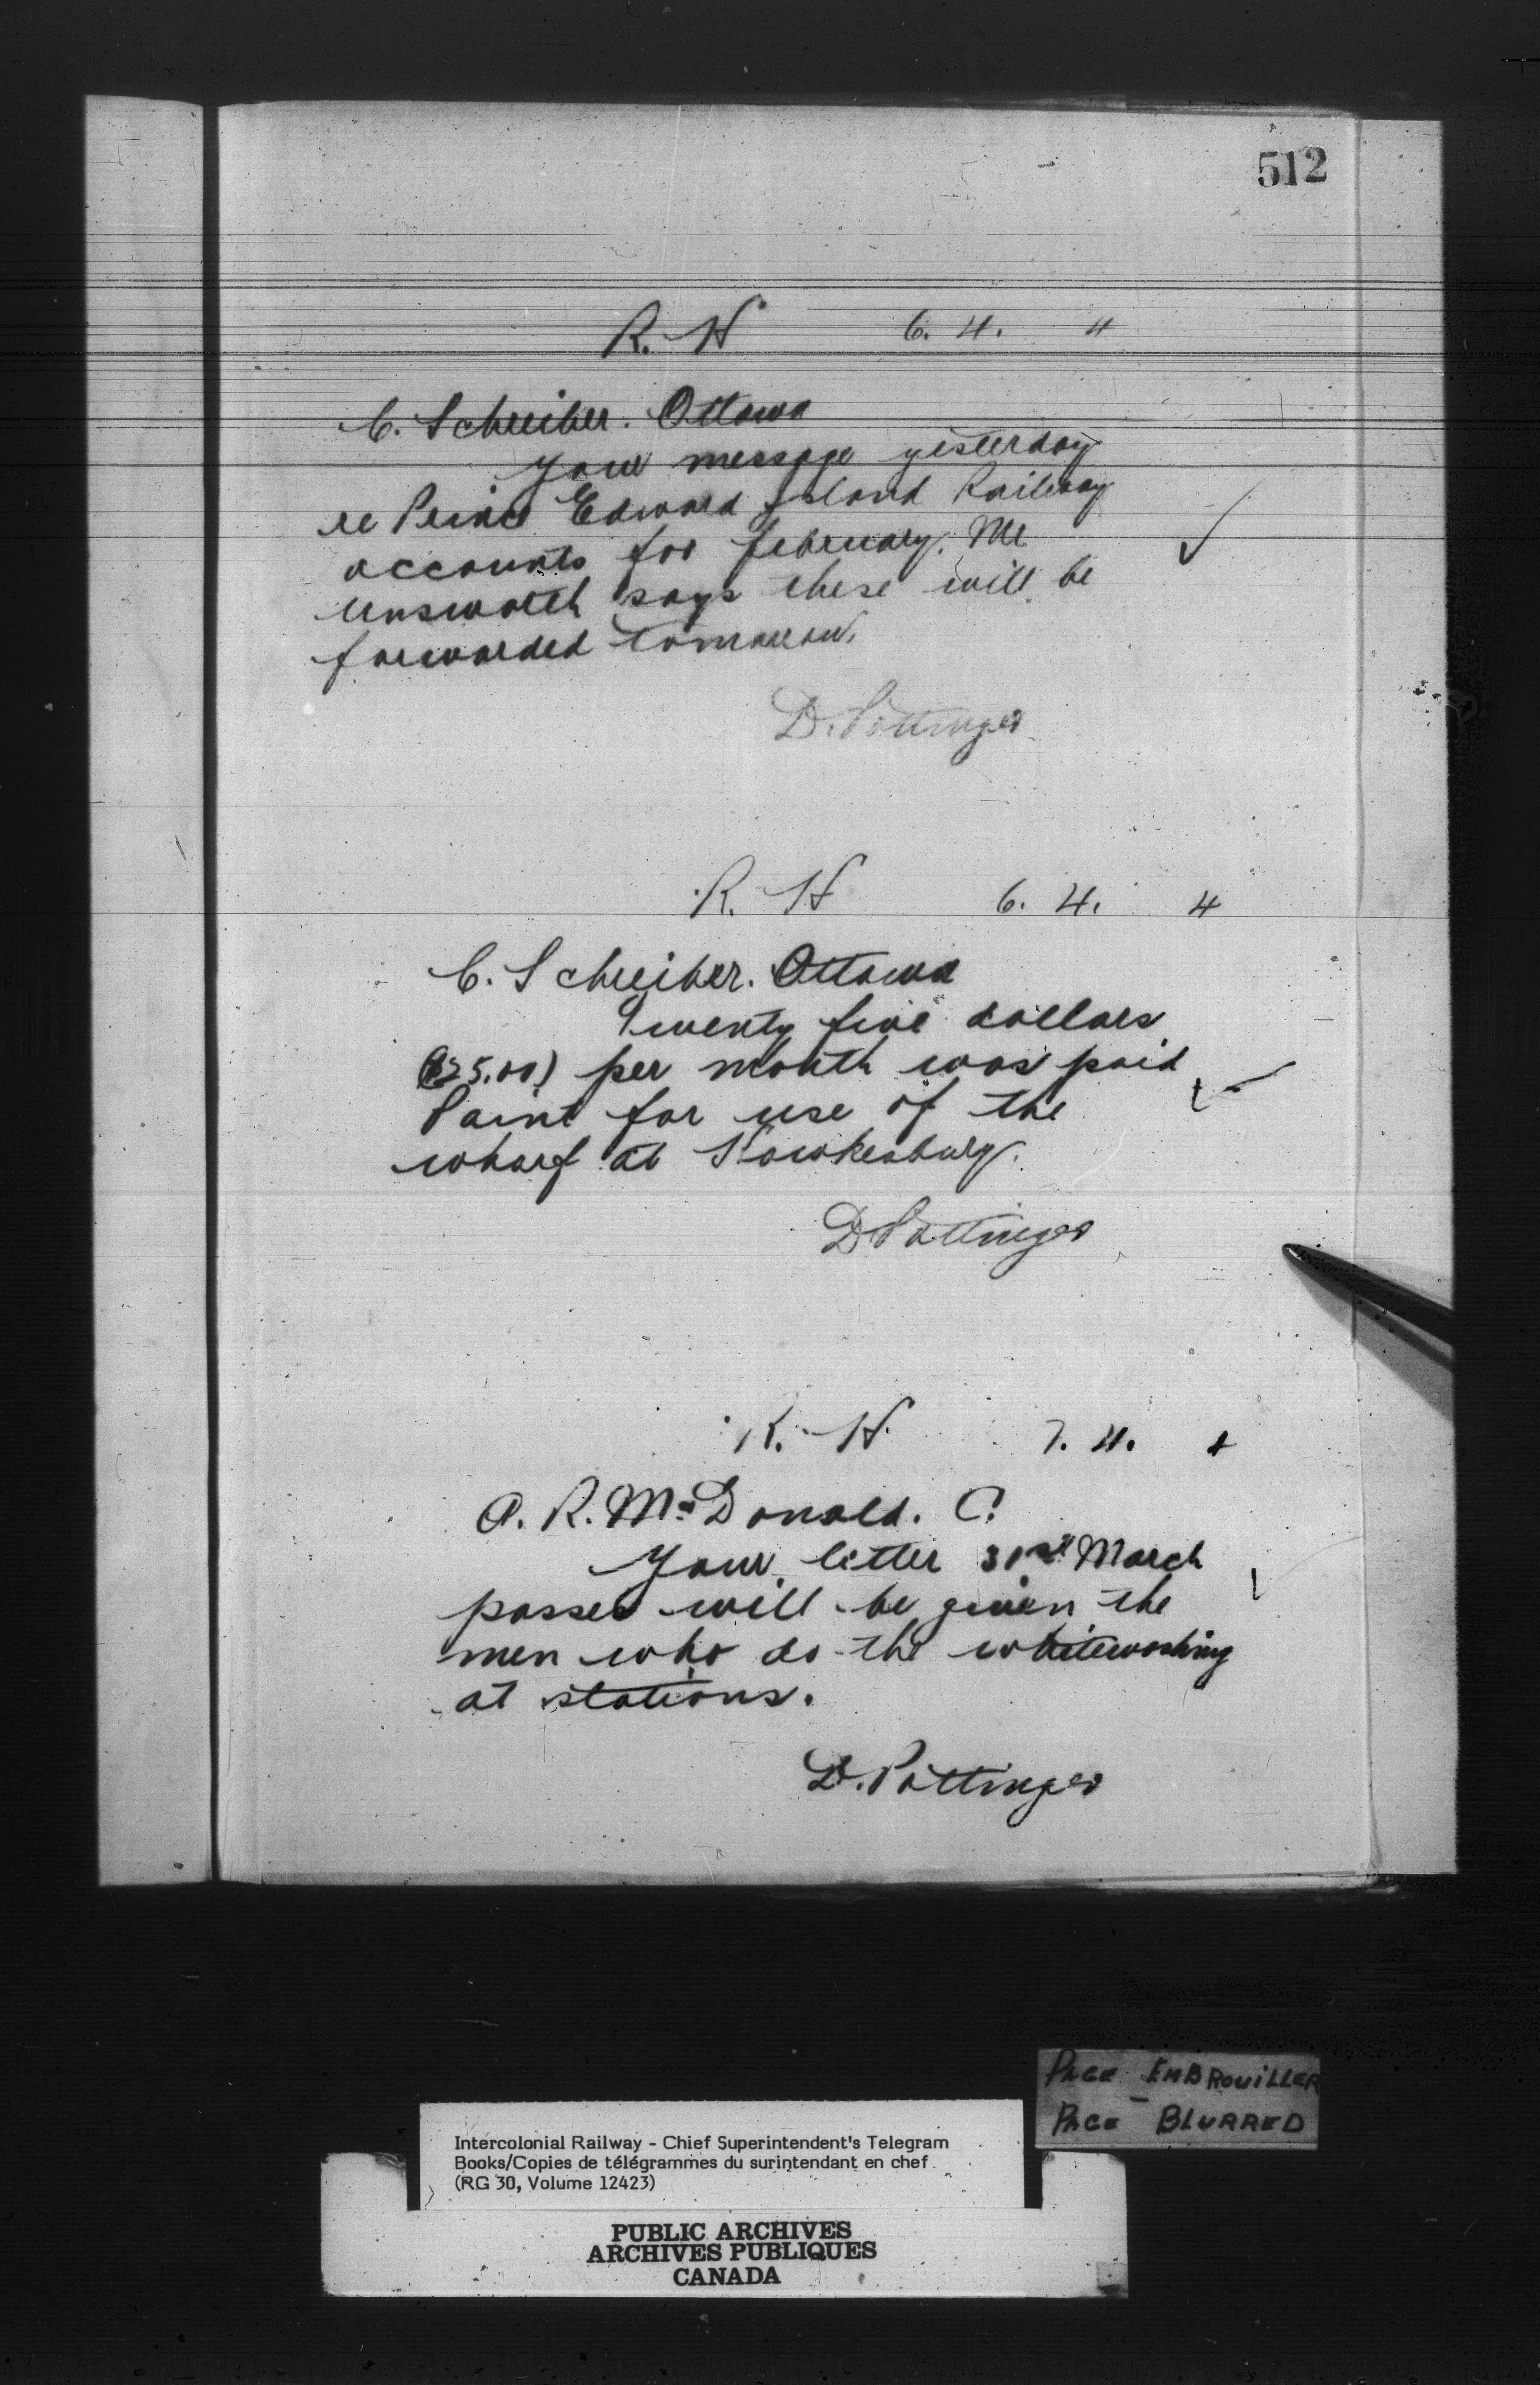 512
R. H 6. 4. 4
C. Schreiber. Ottawa
Your message yesterday
re Prince Edward Island Railway
accounts for February. Mr
Unsworth says these will be
forwarded tomorrow.
D. Pottinger
R. H 6. 4. 4
C. Schreiber. Ottawa
Twenty five dollars
($25.00) per month was paid
Paint for use of the
wharf at Hawkesbury.
D Pottinger
R. H. 7. 4. 4
A. R. McDonald. C.
Your letter 31st March
passes will be given the
men who do the whitewashing
at stations.
D. Pottinger
PAGE EMBROUILLER
PAGE BLURRED
Intercolonial Railway - Chief Superintendent's Telegram
Books/Copies de télégrammes du surintendant en chef
(RG 30, Volume 12423)
PUBLIC ARCHIVES
ARCHIVES PUBLIQUES
CANADA